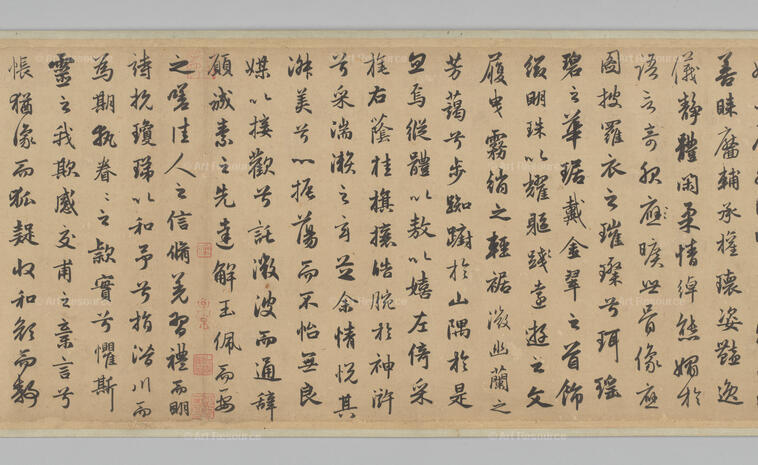 善睞靨輔承權瓌姿豔逸
儀靜體閑柔情綽態媚於
語言奇服應曠世骨像應
圖披羅衣之璀璨兮珥瑶
碧之華琚戴金翠之首飾
綴明珠以耀軀踐遠遊之文
履曳霧綃之輕裾微幽蘭之
芳藹兮步踟躕於山隅於是
忽焉縱體以敖以嬉左倚采
旄右蔭桂旗攘皓腕於神滸
兮采湍瀨之玄芝余情悅其
淑美兮心振蕩而不怡無良
媒以接歡兮託微波而通辭
願誠素之先達解玉佩而要
之嗟佳人之信脩羌習禮而明
詩抗瓊珶以和予兮指潛川而
為期執眷〻之款實兮懼斯
靈之我欺感交甫之棄言兮
悵猶像而狐疑收和顏而靜
Art Resource